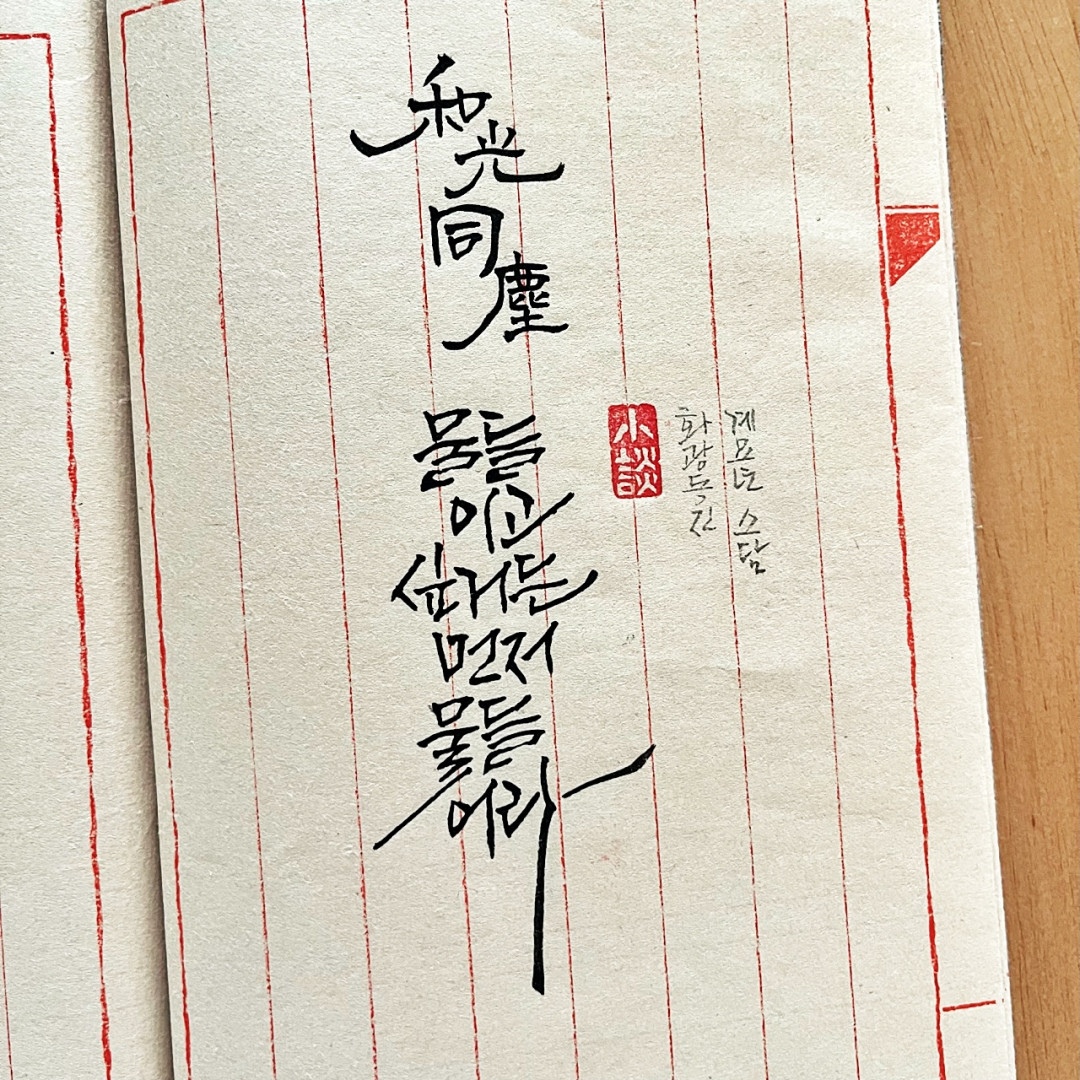 和光
同塵
물들
이고
싶거든
먼저
물들
이라
小談
화광동진
계묘년 소담